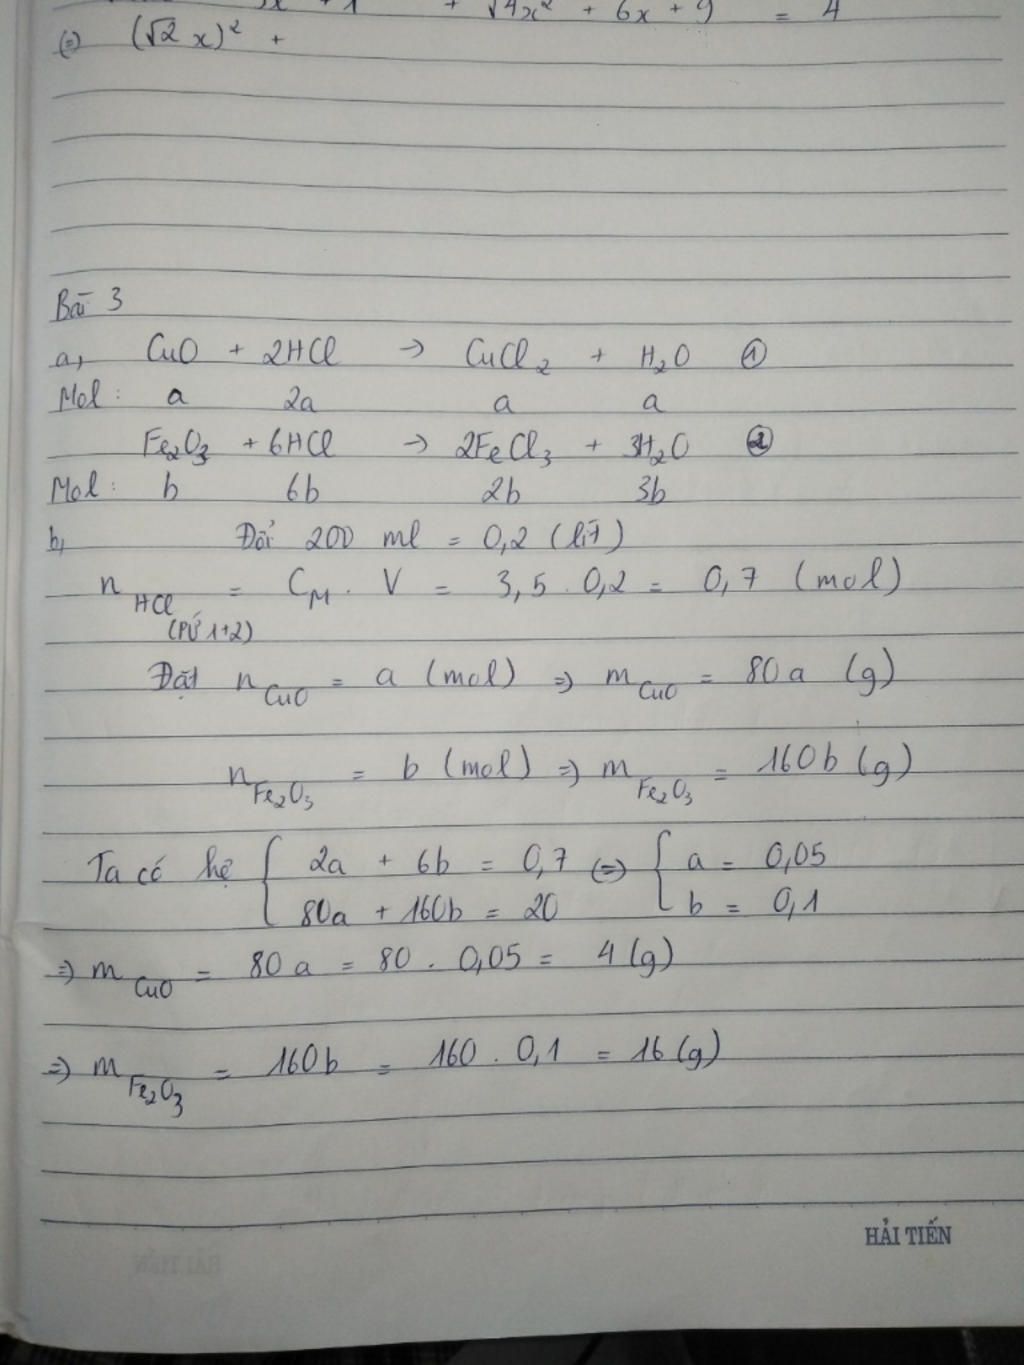 + √4x² + 6x + 9 = 4
(=) (√2 x)² +
Bài 3
a, CuO + 2HCl → CuCl₂ + H₂O ①
Mol: a 2a a a
Fe₂O₃ + 6HCl → 2FeCl₃ + 3H₂O ②
Mol: b 6b 2b 3b
b, Đổi 200 ml = 0,2 (lít)
n HCl (PỨ 1+2) = C_M . V = 3,5 . 0,2 = 0,7 (mol)
Đặt n CuO = a (mol) => m CuO = 80a (g)
n Fe₂O₃ = b (mol) => m Fe₂O₃ = 160b (g)
Ta có hệ { 2a + 6b = 0,7 (=) { a = 0,05
80a + 160b = 20 b = 0,1
=> m CuO = 80a = 80 . 0,05 = 4 (g)
=> m Fe₂O₃ = 160b = 160 . 0,1 = 16 (g)
HẢI TIẾN